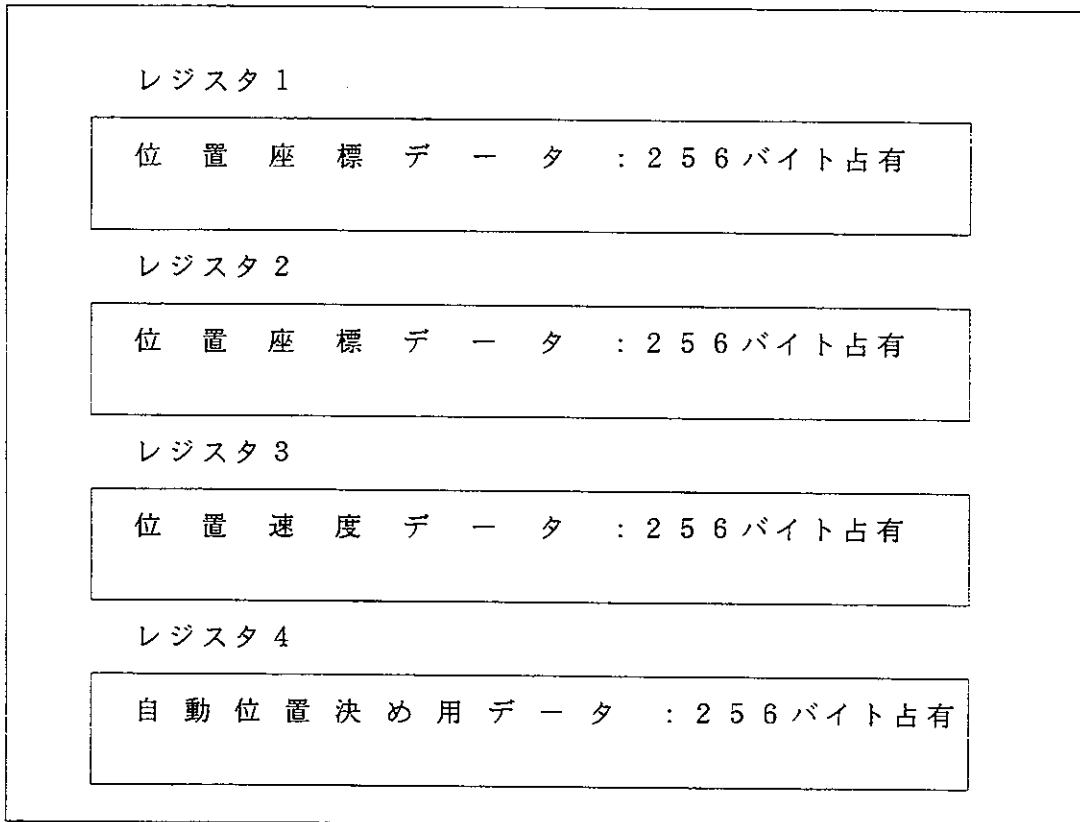 レジスタ1
位置座標データ:256バイト占有
レジスタ2
位置座標データ:256バイト占有
レジスタ3
位置速度データ:256バイト占有
レジスタ4
自動位置決め用データ:256バイト占有